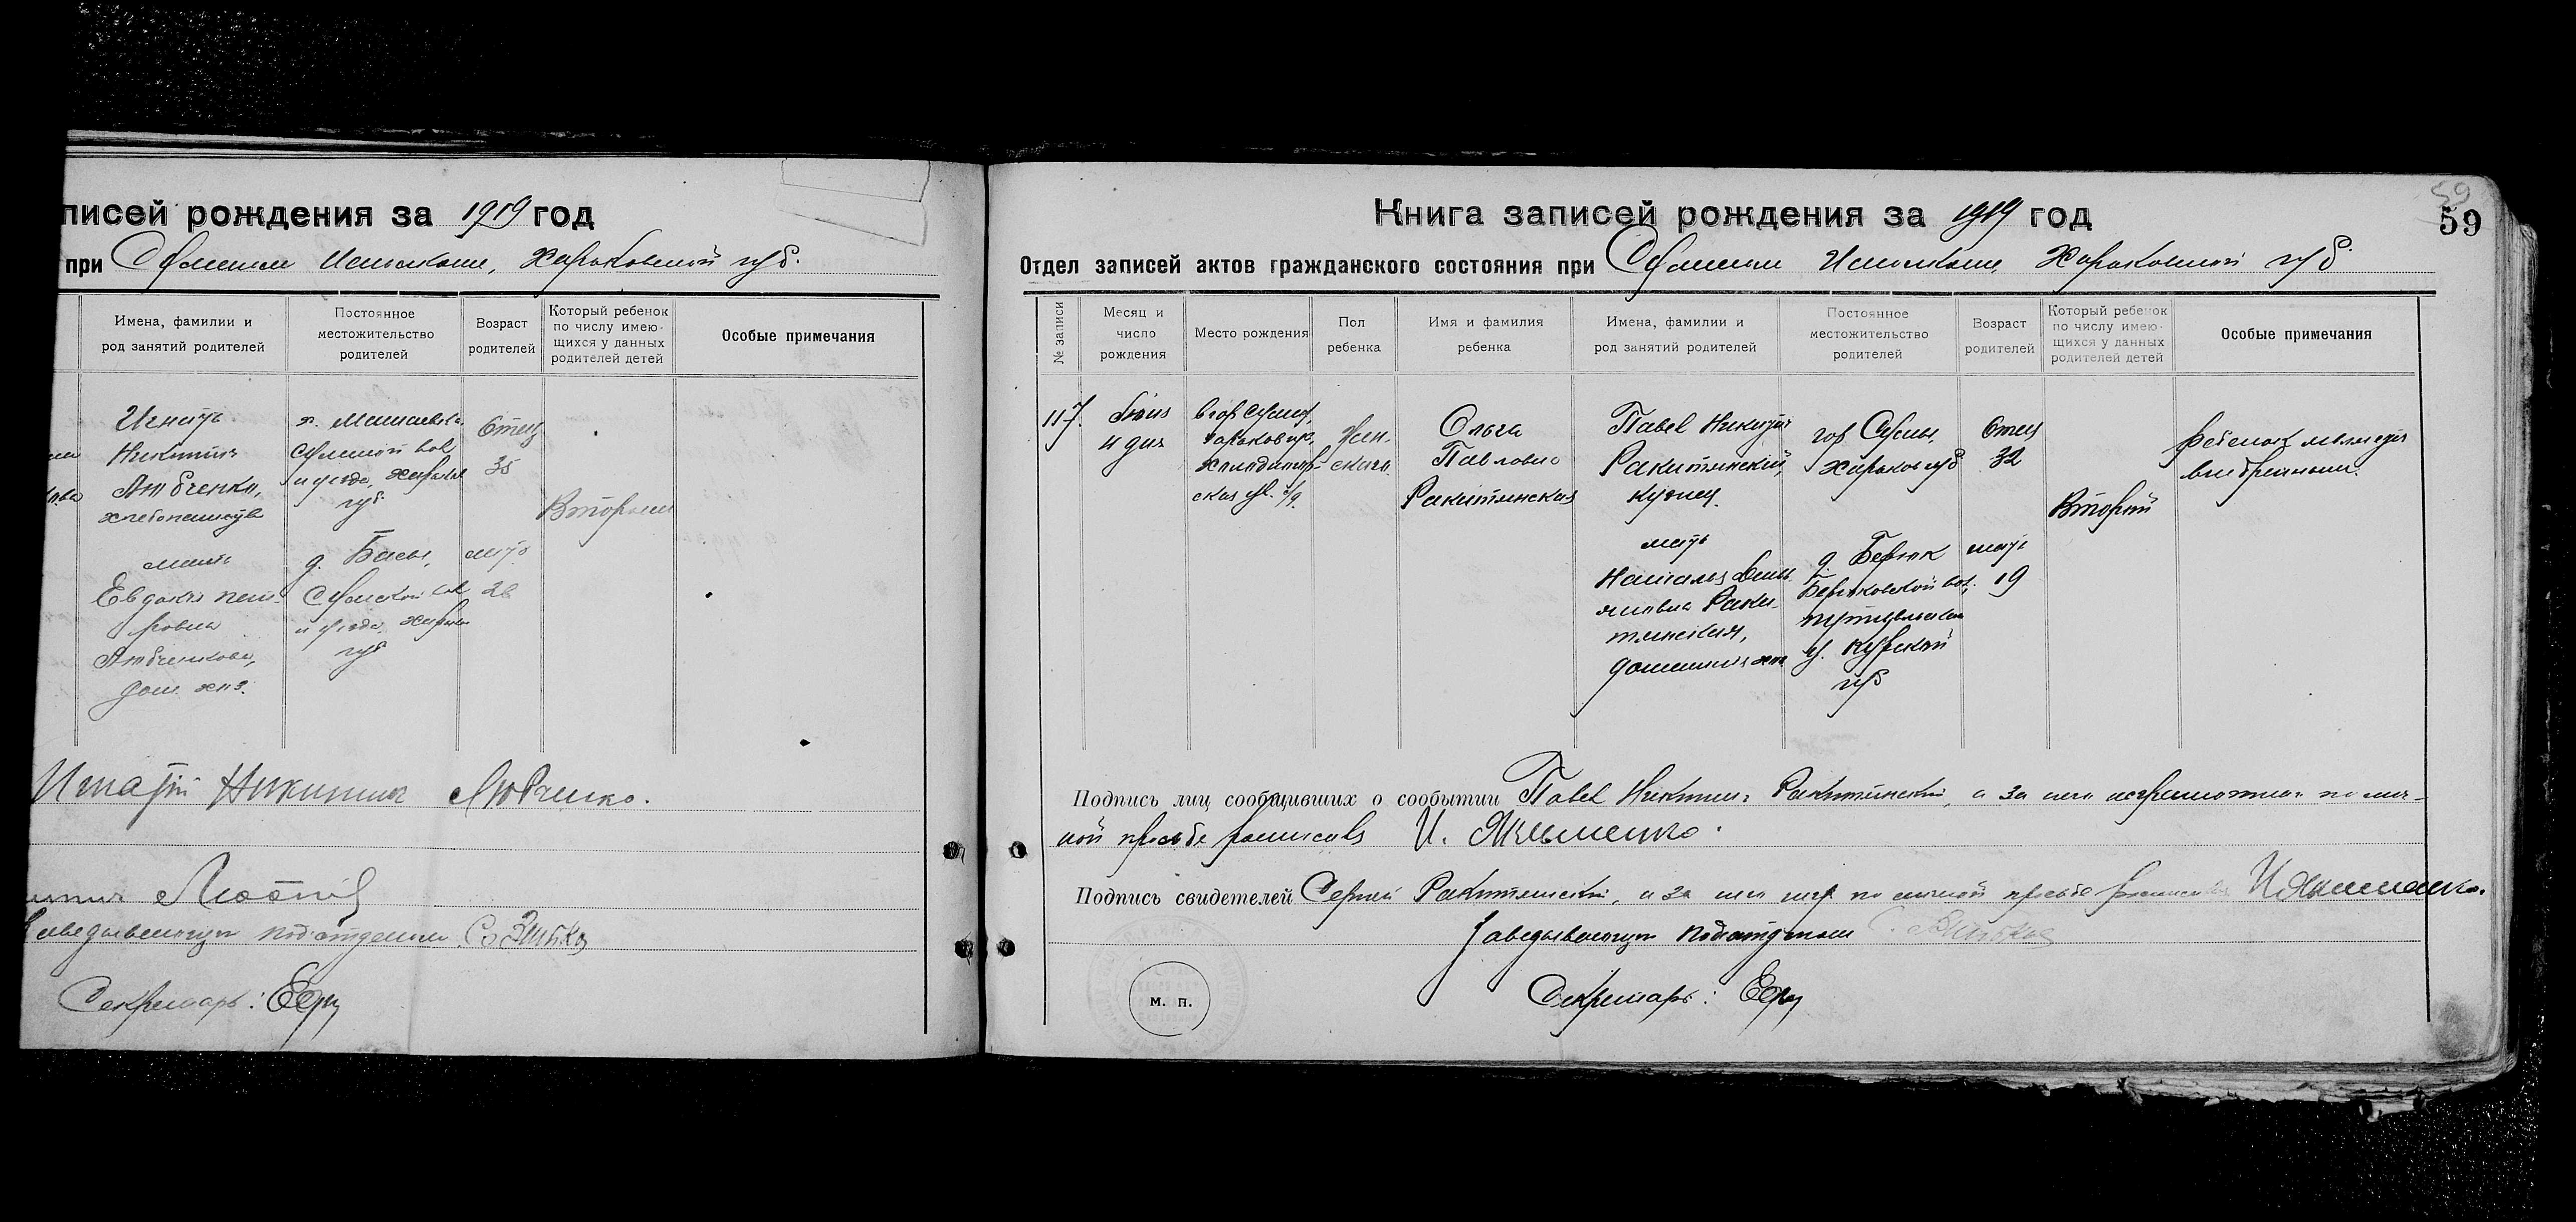 писей рождения за 1919 год
при Сумском Исполкоме, Харьковской губ.
Имена, фамилии и
род занятий родителей
Постоянное
местожительство
родителей
Возраст
родителей
Который ребенок
по числу имею-
щихся у данных
родителей детей
Особые примечания
Игнатъ
Никитинъ
Любченко,
хлебопашец
мать
Евдокия Пет-
ровна
Любченкова,
дом. хоз.
Сумской вол
и уезда, Харьков
губ.
д. Басы,
Сумской вол
и уезда, Харьков
губ
Отец
35
мать
Вторым
Никитинъ Любченко.
Заведывающий подотделом
Секретарь:
59
59
Книга записей рождения за 1919 год
Отдел записей актов гражданского состояния при Сумском Исполкоме, Харьковской губ
№ записи
Месяц и
число
рождения
Место рождения
Пол
ребенка
Имя и фамилия
ребенка
Имена, фамилии и
род занятий родителей
Постоянное
местожительство
родителей
Возраст
родителей
Который ребенок
по числу имею-
щихся у данных
родителей детей
Особые примечания
117.
дня
в гор Сумах,
Харьков губ.
Жен-
скаго
Ольга
Павловна
Ракитянская
Павел Никитин
Ракитянский,
кузнец.
мать
Наталья
Раки-
тянская,
домашняя хоз
гор Сумы,
Харьков губ
д. Берюх
Берюховской вол,
Путивльскаго
у. Курской
губ
Отец
32
мать
19
Второй
Ребенок
внебрачный.
Подпись лиц сообщивших о событии Павел Никитин Ракитянский, а за него неграмотнаго по лич-
ной просьбе росписался И. Якименко.
Подпись свидетелей Сергей Ракитянский, а за него негр по личной просьбе И. Якименко.
Заведывающий подотделом
м. п.
Секретарь: